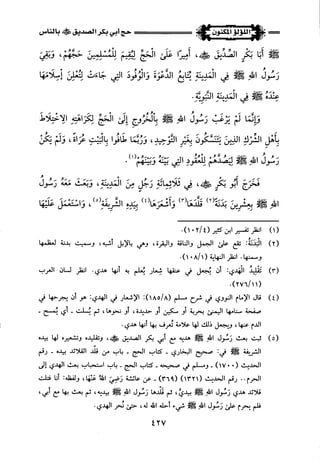 اللؤلؤ المكنون حج أبي بكر الصديق ﷺ بالناس
أبا بكر الصديق ﷺ، أميرا على الحج ليقيم للمسلمين حجهم، وبقي
رسول الله ﷺ في المدينة يتابع الدعوة والوفود التي جاءت لتعلن إسلامها
عنده ﷺ في المدينة النبوية.
وإنما لم يرغب رسول الله ﷺ بالخروج إلى الحج لكراهته الاختلاط
بأهل الشرك الذين ينسكون بغير التوحيد، وربما طافوا بالبيت عراة، ولم يكن
رسول الله ﷺ ليصدهم للعقود التي بينه وبينهم(١).
فخرج أبو بكر ﷺ، في ثلاثمائة رجل من المدينة، وبعث معه رسول
الله ﷺ بعشرين بدنة(٢) قلدها(٣) وأشعرها(٤) بيده الشريفة(٥)، واستعمل عليها
(١) انظر تفسير ابن كثير (١٠٢/٤).
(٢) البَدَنَة: تقع على الجمل والناقة والبقرة، وهي بالإبل أشبه، وسميت بدنة لعظمها
وسمنها. انظر النهاية (١٠٨/١).
(٣) تقليد الهدي: أن يجعل في عنقها شعار يعلم به أنها هدي. انظر لسان العرب
(٢٧٦/١١).
(٤) قال الإمام النووي في شرح مسلم (١٨٥/٨): الإشعار في الهدي: هو أن يجرحها في
صفحة سنامها اليمنى بحربة أو سكين أو حديدة، أو نحوها، ثم يسلت - أي يمسح -
الدم عنها، ويجعل ذلك علامة لها يعرف بها أنها هدي.
(٥) ثبت بعث رسول الله ﷺ هديه مع أبي بكر الصديق ﷺ، وتقليدها وتشعيرها له بيده
الشريفة ﷺ في: صحيح البخاري - كتاب الحج - باب من قلد القلائد بيده - رقم
الحديث (١٧٠٠) - ومسلم في صحيحه - كتاب الحج - باب استحباب بعث الهدي إلى
الحرم.. رقم الحديث (١٣٢١) (٣٦٩) - عن عائشة رضي الله عنها، ولفظه: أنا فتلت
قلائد هدي رسول الله ﷺ بيدي، ثم قلدها رسول الله ﷺ بيده، ثم بعث بها مع أبي،
فلم يحرم على رسول الله ﷺ شيء أحله الله له، حتى نحر الهدي.
٤٢٧